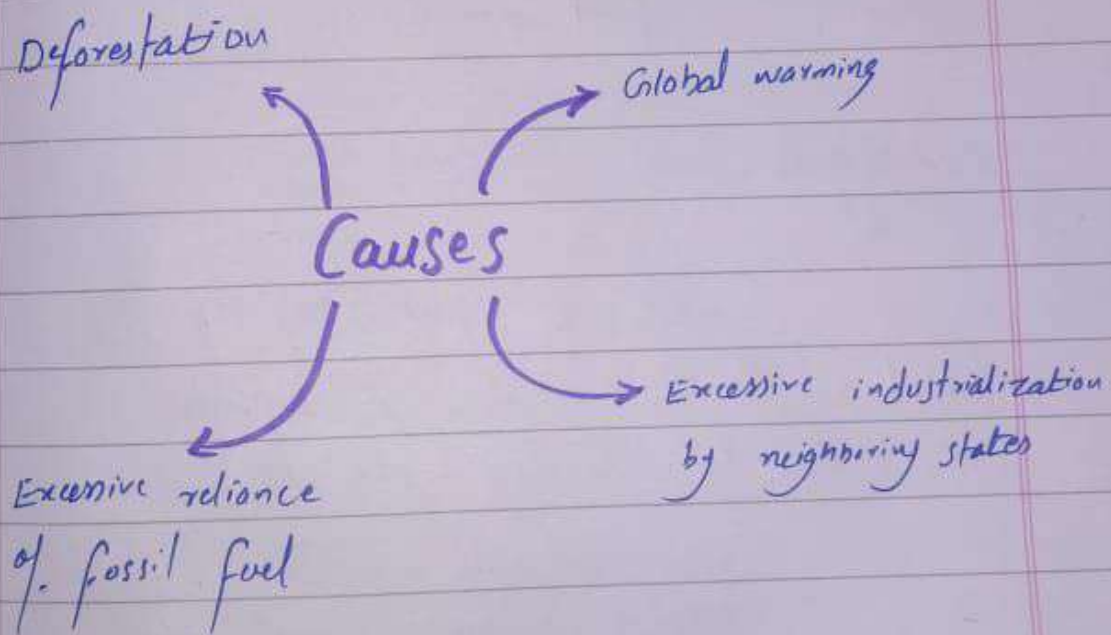 Deforestation
Global warming
Causes
Excessive industrialization
by neighboring states
Excessive reliance
fossil fuel